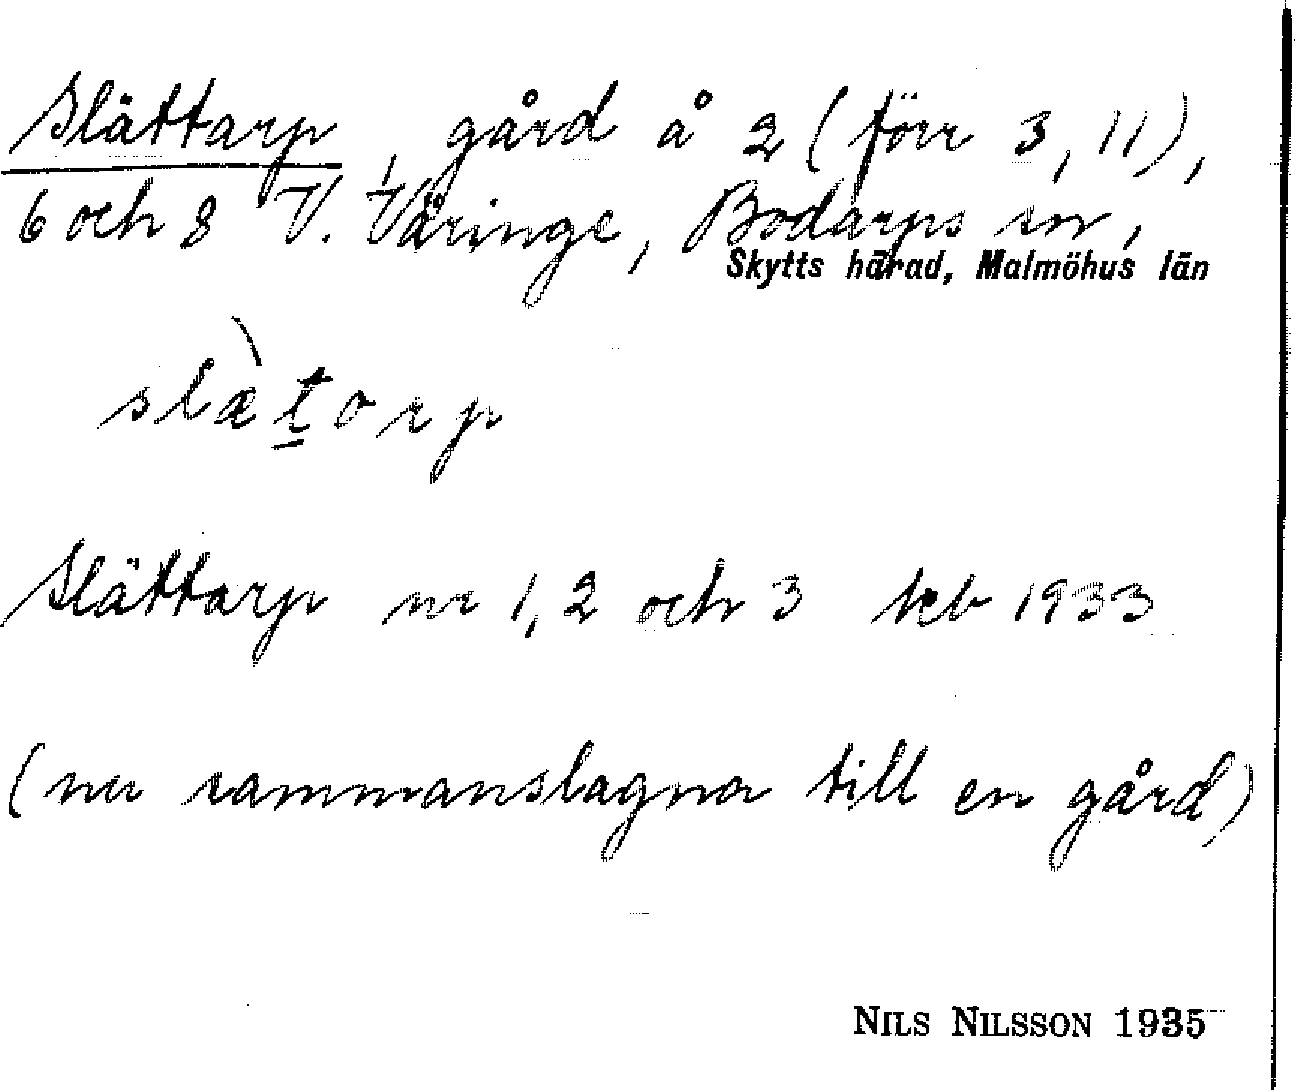 Slättarp, gård å 2 (förr 3, 11),
6 och 8 V. Väringe, Bodarps sn,
Skytts härad, Malmöhus län
slæ̀t̲orp
Slättarp nr 1, 2 och 3 kb 1933
(nu sammanslagna till en gård)
NILS NILSSON 1935